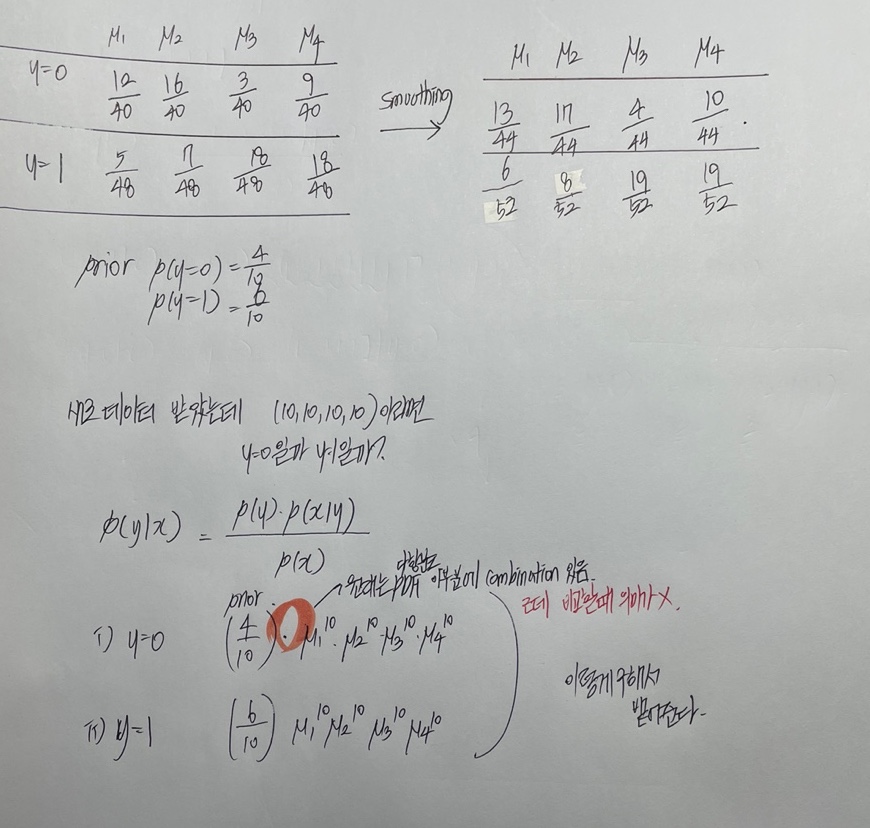 μ₁ μ₂ μ₃ μ₄
y=0 12/40 16/40 3/40 9/40
y=1 5/48 7/48 18/48 18/48
smoothing →
μ₁ μ₂ μ₃ μ₄
13/44 17/44 4/44 10/44 .
6/52 8/52 19/52 19/52
prior p(y=0) = 4/10
p(y=1) = 6/10
새로 데이터 받았는데 (10,10,10,10)이라면
y=0일까 y=1일까?
p(y|x) = p(y)·p(x|y) / p(x)
원래는 다항분포 pdf 이부분에 combination 있음.
근데 비교할때 의미가 X.
prior
I) y=0 (4/10) · μ₁¹⁰·μ₂¹⁰·μ₃¹⁰·μ₄¹⁰
이렇게 구해서
II) y=1 (6/10) μ₁¹⁰μ₂¹⁰ μ₃¹⁰ μ₄¹⁰